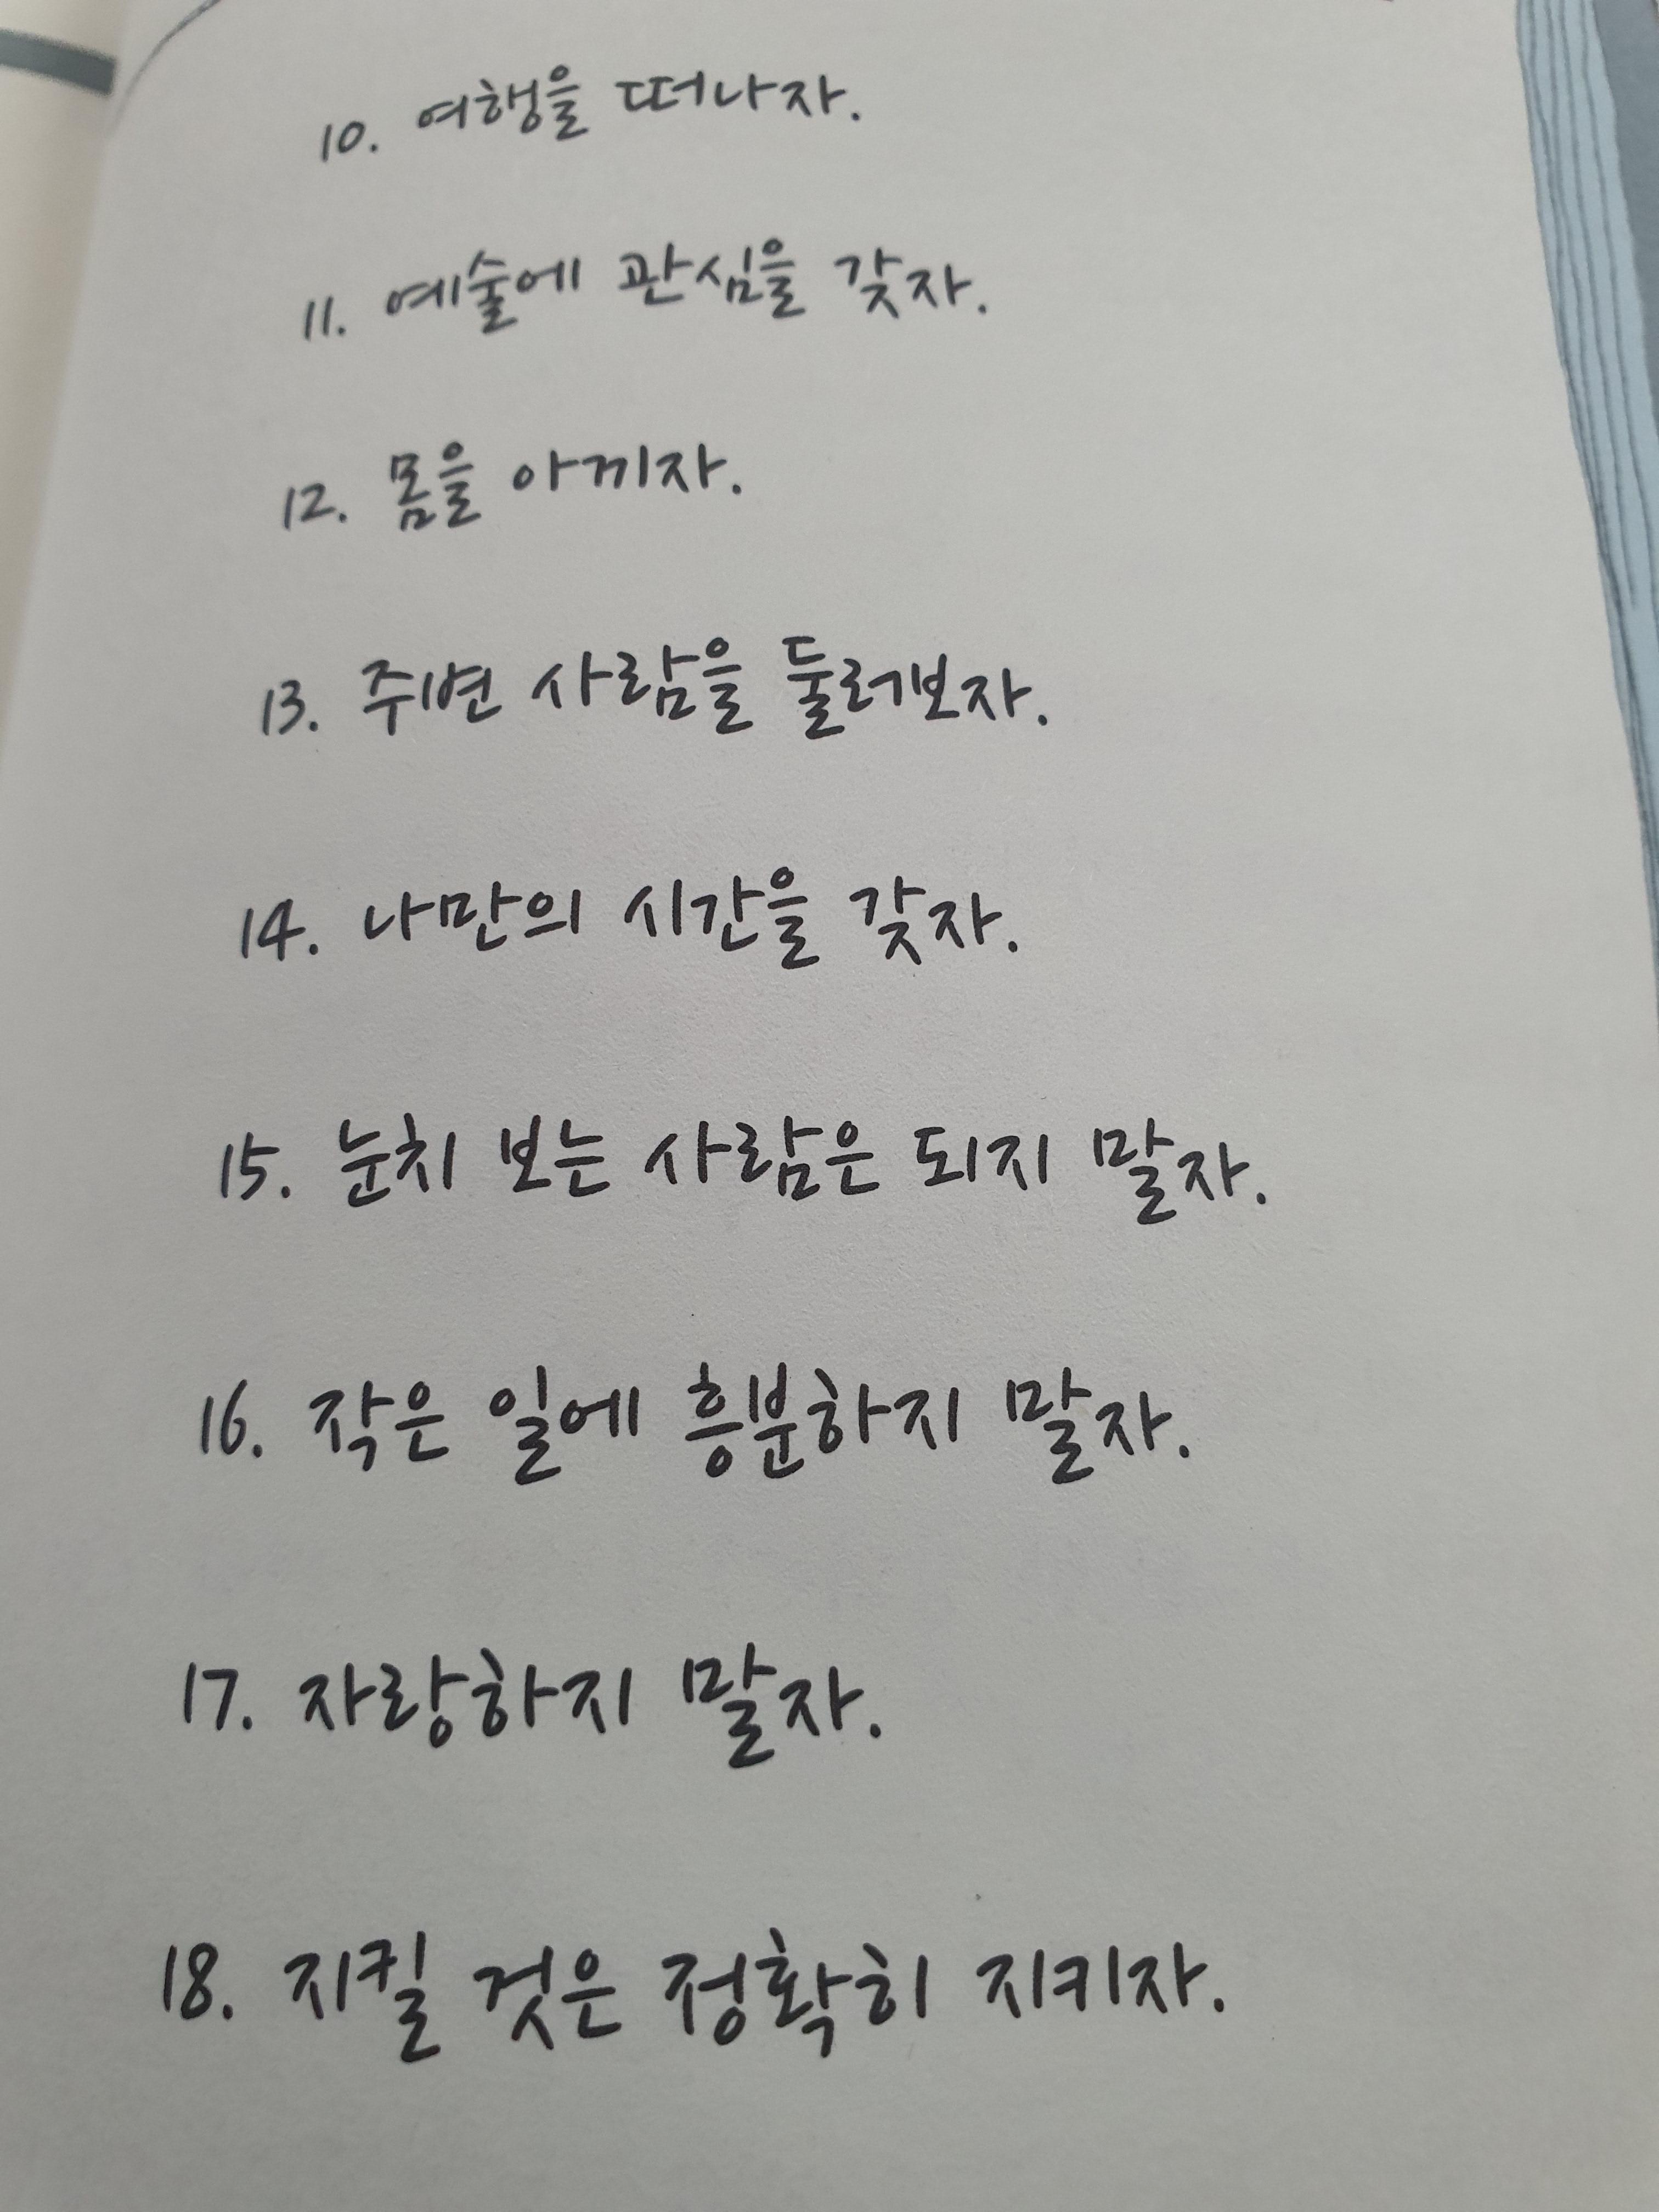 10. 여행을 떠나자.
11. 예술에 관심을 갖자.
12. 몸을 아끼자.
13. 주변 사람을 둘러보자.
14. 나만의 시간을 갖자.
15. 눈치 보는 사람은 되지 말자.
16. 작은 일에 흥분하지 말자.
17. 자랑하지 말자.
18. 지킬 것은 정확히 지키자.